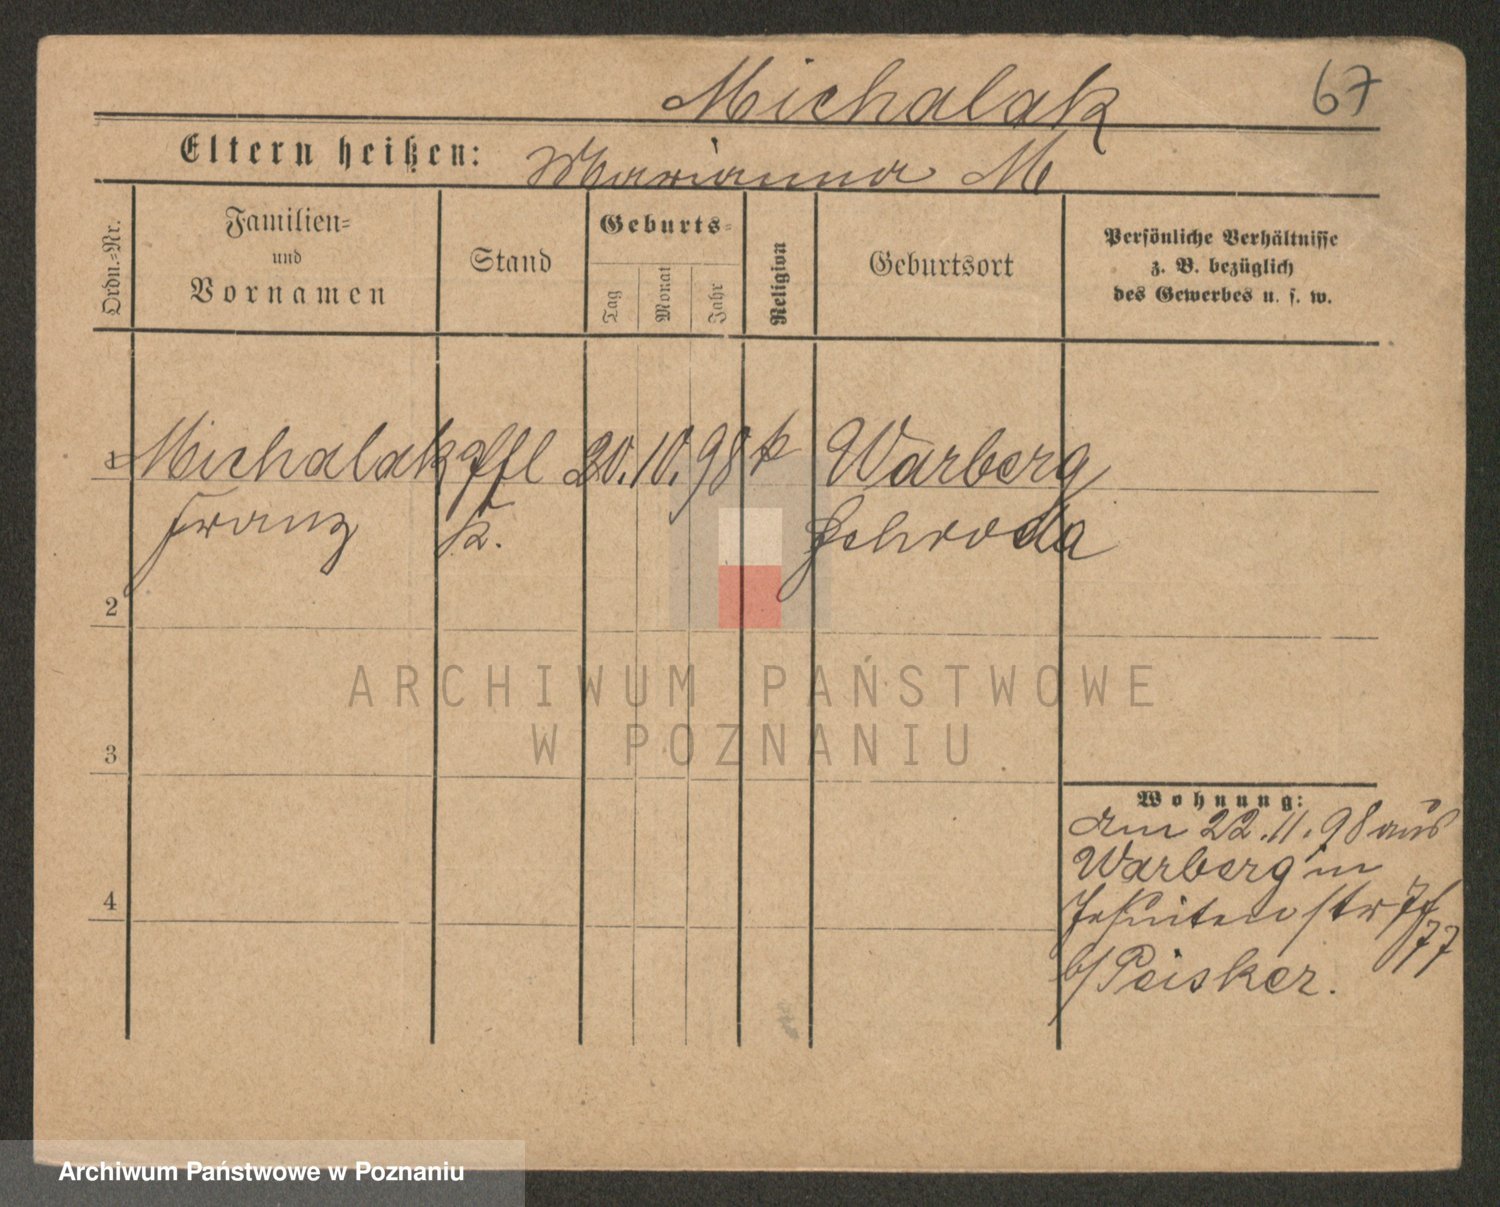 Michalak
67
Eltern heißen: Marianna M
Ordn.-Nr.
Familien- und Vornamen
Stand
Geburts-
Tag
Monat
Jahr
Religion
Geburtsort
Persönliche Verhältnisse
z. B. bezüglich
des Gewerbes u. s. w.
1 Michalak Pfl 20. 10. 98 k Warberg
Franz K. Schroda
2
3
4
Wohnung:
am 22.11.98 aus
Warberg in
Jesuitenstr
b/ Peisker.
ARCHIWUM PAŃSTWOWE
W POZNANIU
Archiwum Państwowe w Poznaniu